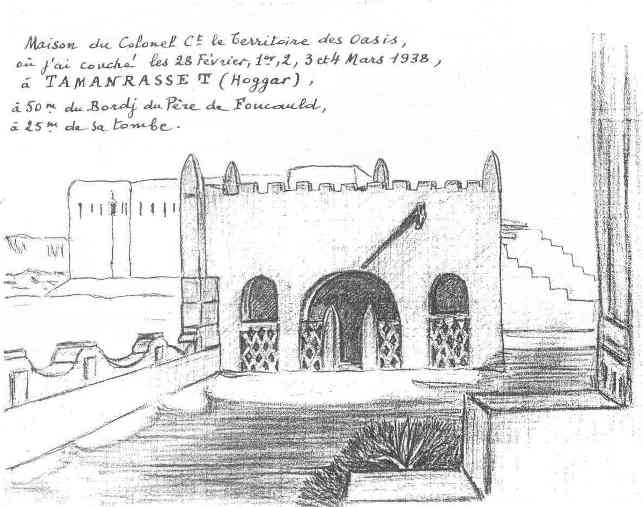 Maison du Colonel Ct le Territoire des Oasis,
où j'ai couché les 28 Février, 1er, 2, 3 et 4 Mars 1938,
à TAMANRASSET (Hoggar),
à 50m du Bordj du Père de Foucauld,
à 25m de sa tombe.